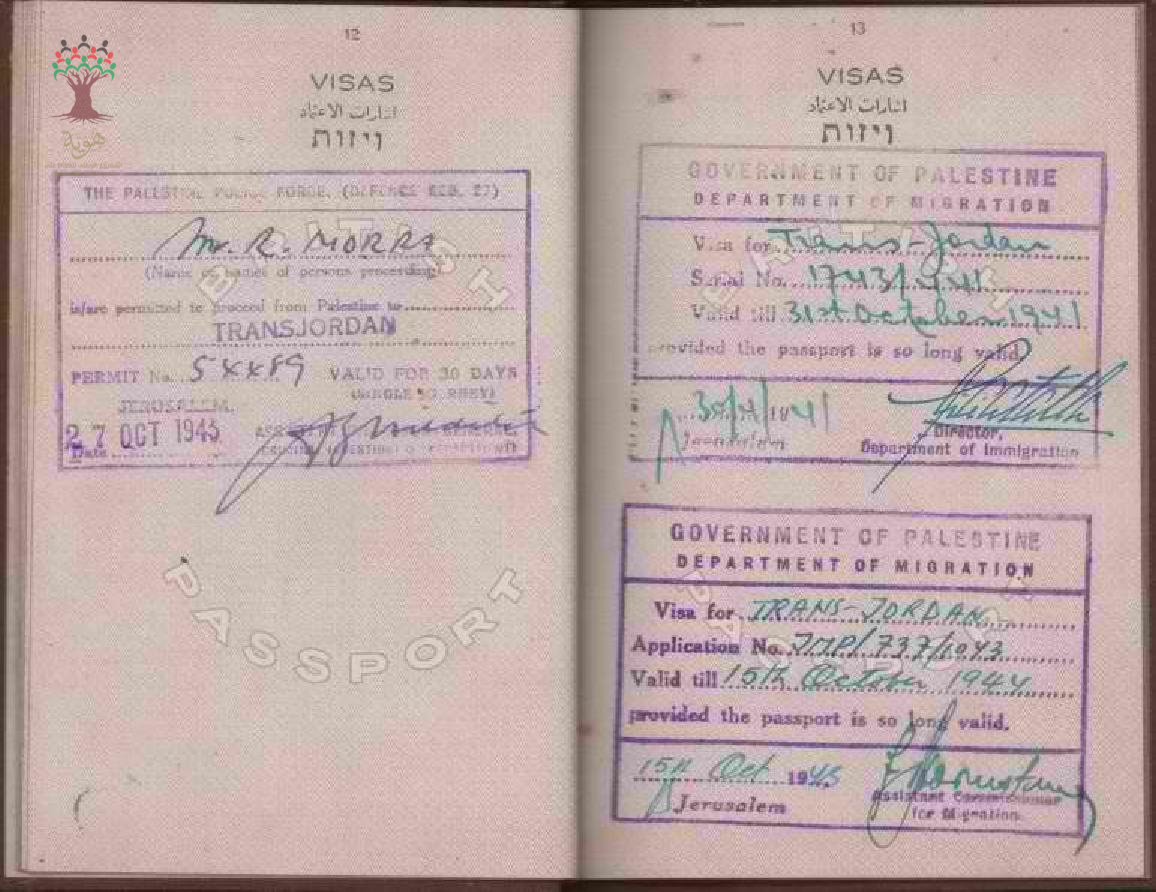 هوية
12
VISAS
اشارات الاعتماد
ויזות
THE PALESTINE POLICE FORCE. (DEFENCE REG. 27)
Mr. R. MORRA
(Name or names of persons proceeding)
is/are permitted to proceed from Palestine to
TRANSJORDAN
PERMIT No. VALID FOR 30 DAYS
(SINGLE JOURNEY)
JERUSALEM.
27 OCT 1943
Date
BRITISH
PASSPORT
13
VISAS
اشارات الاعتماد
ויזות
GOVERNMENT OF PALESTINE
DEPARTMENT OF MIGRATION
Visa for Trans-Jordan
Serial No. 1743/1941
Valid till 31st October 1941
provided the passport is so long valid.
1941
Jerusalem
Director,
Department of Immigration
GOVERNMENT OF PALESTINE
DEPARTMENT OF MIGRATION
Visa for TRANS-JORDAN
Application No. 737/1943
Valid till 15th October 1944
provided the passport is so long valid.
15th Oct 1943
Jerusalem
Assistant Commissioner
for Migration.